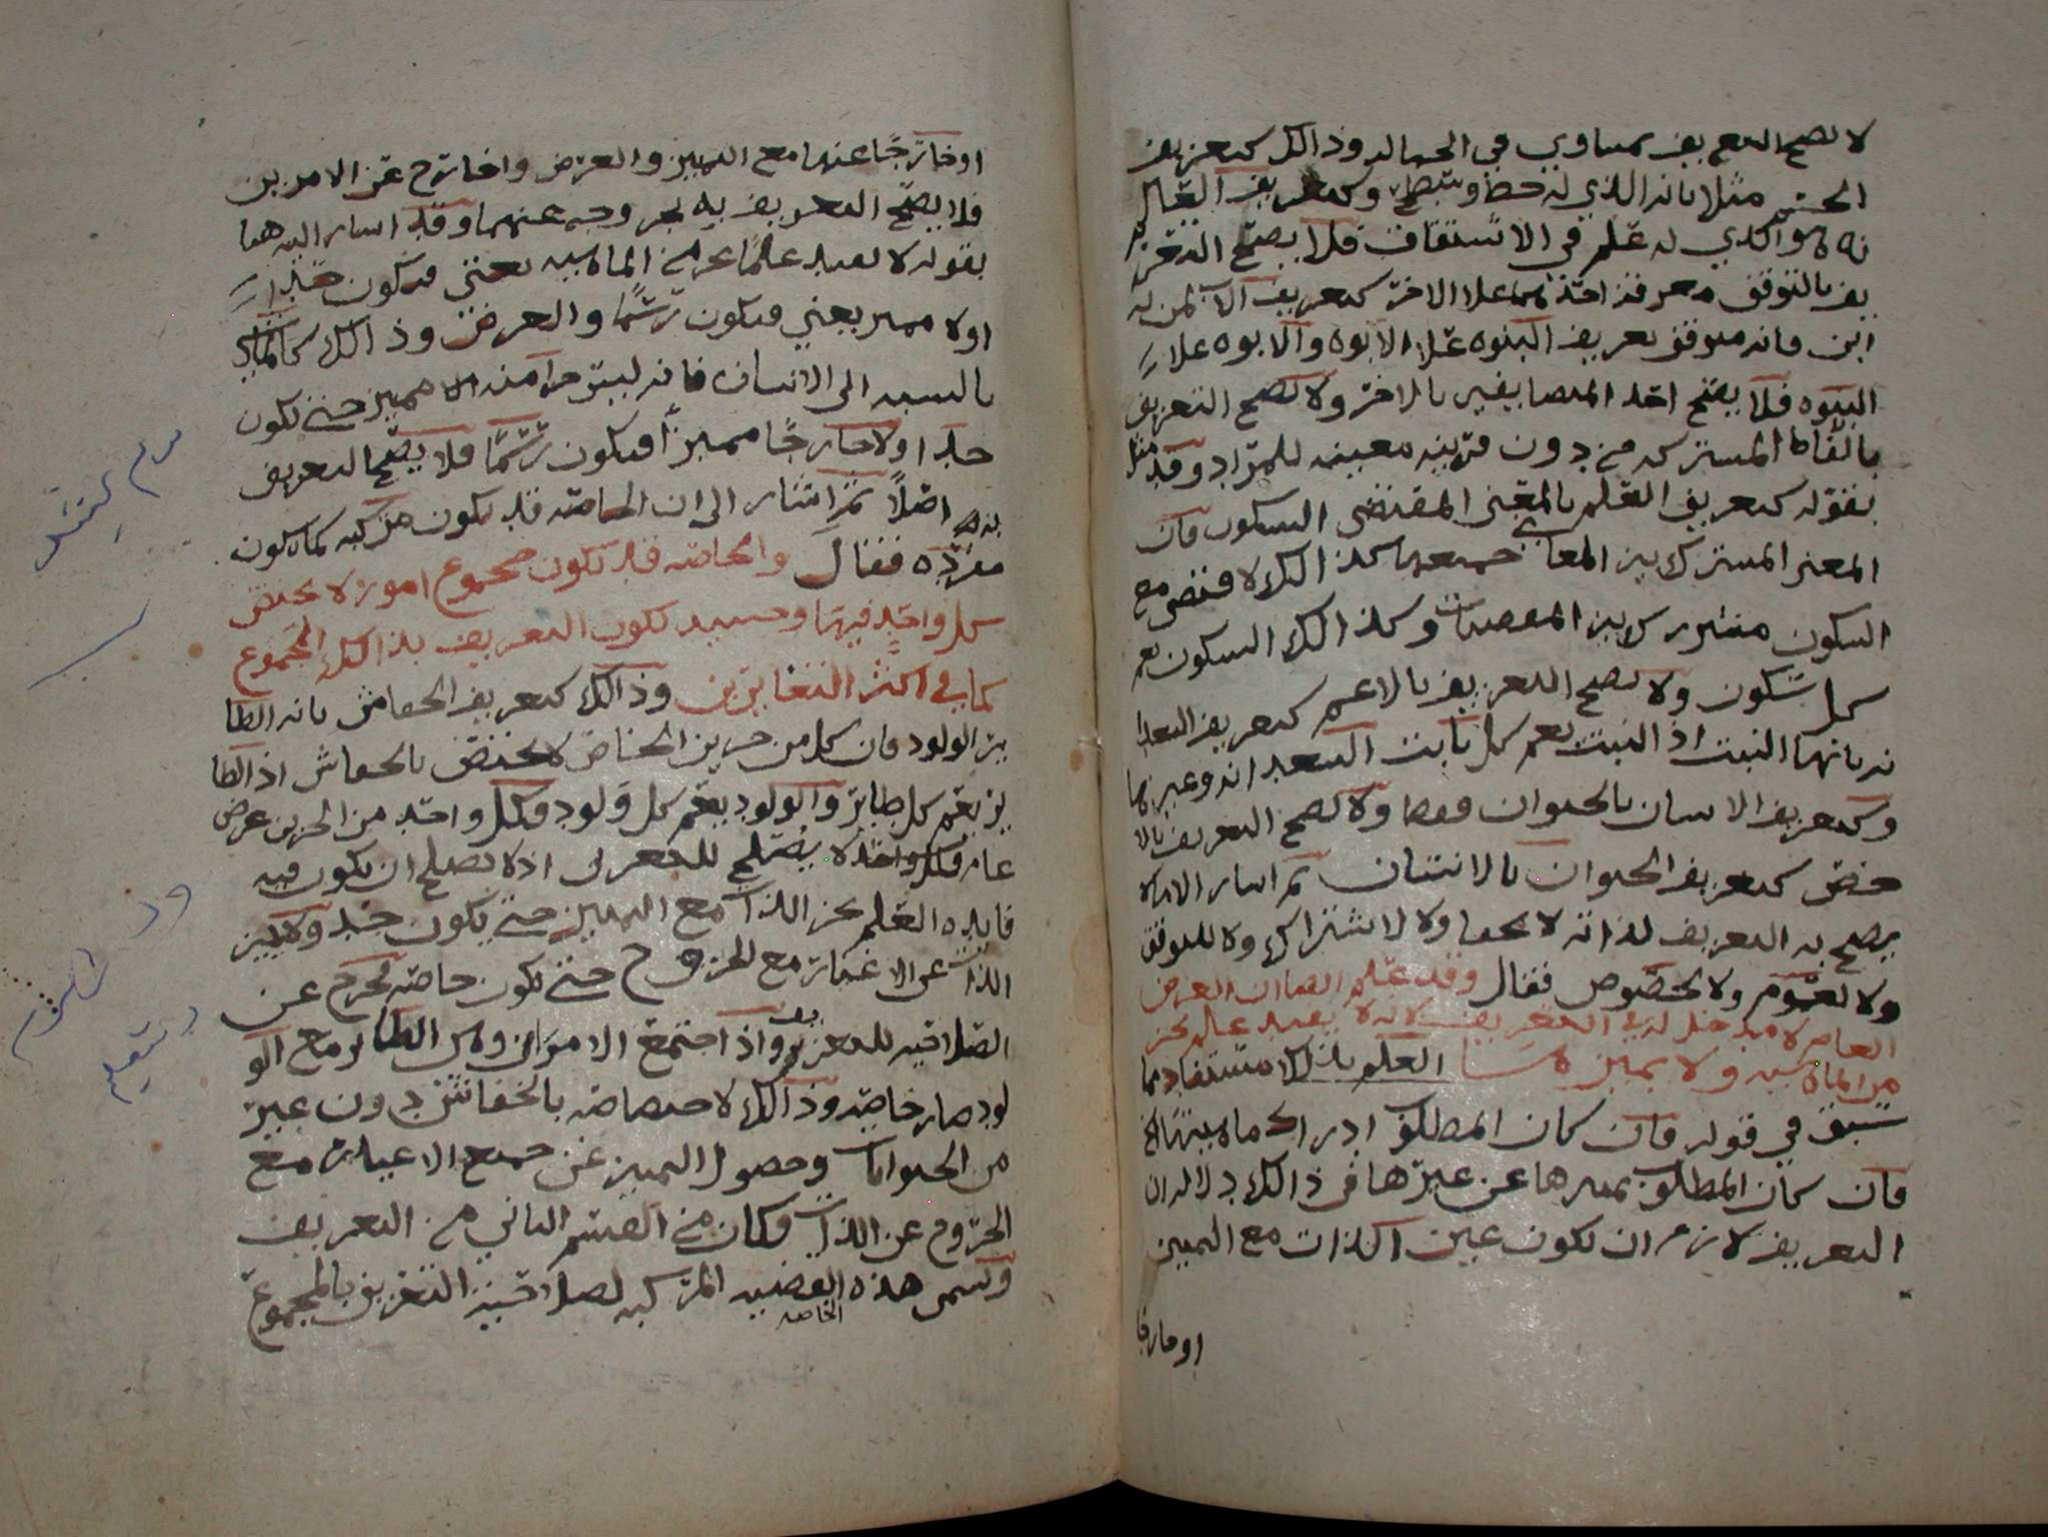 لا يصح التعريف بمساوي في الجهاله وذالك كتعريف
الجسم مثلا بانه الذي له خط وسطح وكتعريف القال
نه هو الذي له علم في الاشتقاق فلا يصح التعر
يف بالتوقف معرفة احدهما علا الاخر كتعريف الاب بمن له
ابن فانه متوقف تعريف البنوه علا الابوه والابوه علا
البنوه فلا يصح احد المتضايفين بالاخر ولا يصح التعريف
بالفاظ المشتركه من دون قرينه معينه للمراد وقد مثل
بقوله كتعريف العلم بالمعنى المقتضى السكون فان
المعنى المشترك بين المعاني جميعها كذالك لا قتضى مع
السكون مشترك بين المقتضيات وكذالك السكون يعم
كل سكون ولا يصح التعريف بالاعم كتعريف السعدا
نه بانها النبت اذ النبت يعم كل نابت السعدانه وغيرها
وكتعريف الانسان بالحيوان فقط ولا يصح التعريف بالا
خص كتعريف الحيوان بالانسان ثم اشار الا ما لا
يصح به التعريف لذاته لا لخفا ولا لاشتراك ولا للتوقف
ولا لعموم ولا لخصوص فقال وقد علم ايضا ان العرض
العام لا مدخل له في التعريف لانه لا يفيد علم بجز
من الماهيه ولا يميزها العلم بذالك مستفاد مما
سبق في قوله فان كان المطلوب ادراك ماهيتها الخ
فان كان المطلوب تميزها عن غيرها فى ذالك دلاله ان
التعريف لازم ان يكون عين الذات مع التمييز
او خارجا
او خارجًا عنها مع التمييز والعرض واخارج عن الامرين
فلا يصح التعريف به لخروجه عنهما وقد اشار اليه هنا
بقوله لا يفيد علمًا بجز من الماهيه يعني فيكون حدا
اولا مميز يعني فيكون رسمًا والعرض وذالك كالماشي
بالنسبه الى الانسان فانه ليس جزا منه الا مميز حتى يكون
حدا اولا خارجًا مميزًا فيكون رسمًا فلا يصح التعريف
به اصلاً ثم اشار الى ان الخاصه قد تكون مركبه كما تكون
مفرده فقال والخاصه قد تكون مجموع امور لا يختص
كل واحد فيها وحينيد تكون التعريف بذالك المجموع
كما في اكثر التعاريف وذالك كتعريف الخفاش بانه الطا
ير الولود فان كل من جزين الخاص لا يختص بالخفاش اذ الطا
ير يعم كل طاير والولود يعم كل ولود فكل واحد من الجزين عرض
عام فكل واحد لا يصلح للتعريف اذ لا يصلح ان يكون فيه
فايده العلم بجز الذات مع التمييز حتى يكون حد ولا تمييز
الذات عن الاغيار مع الخروج حتى يكون خاصه مخرج عن
الصلاحيه للتعريف واذا اجتمع الامران وهى الطاير مع الو
لود صار خاصه وذالك لاختصاصه بالخفاش دون غيره
من الحيوانات وحصول التمييز عن جميع الاغيار مع
الخروج عن الذات فكان من القسم الثاني من التعريف
وتسمى هذه القضيه المركبه لصلاحية التعريف بالمجموع
الخاصه